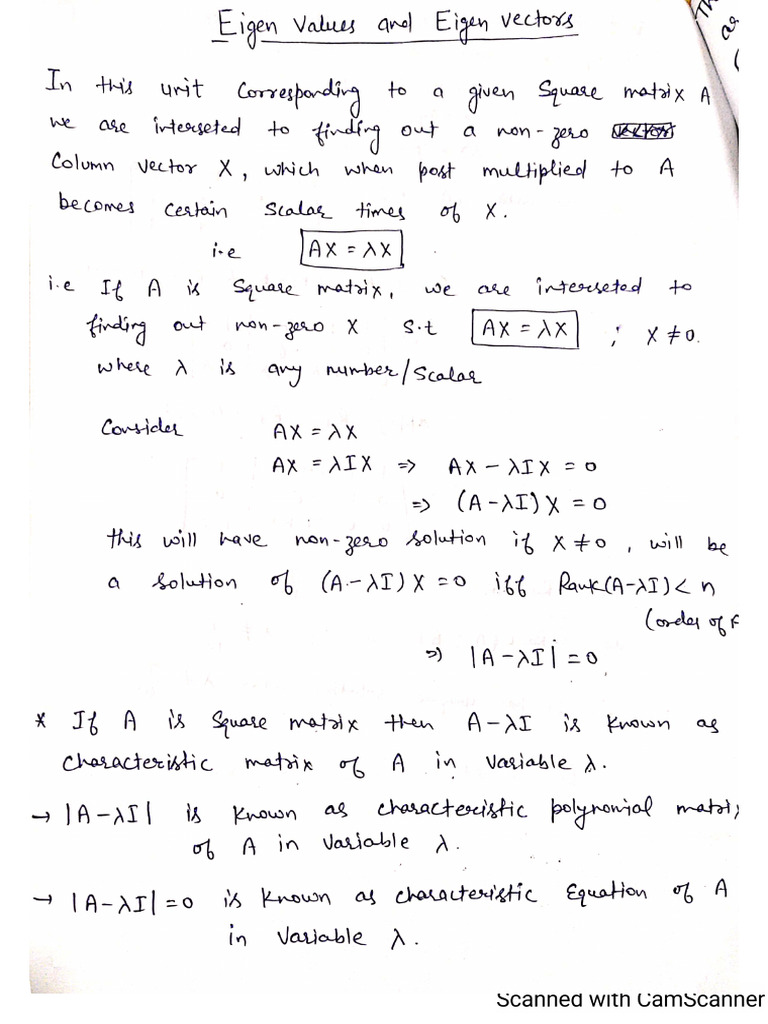 Eigen Values and Eigen vectors
In this unit Corresponding to a given Square matrix A
we are interseted to finding out a non-zero
Column vector X, which when post multiplied to A
becomes certain scalar times of X.
i.e AX = λX
i.e If A is Square matrix, we are interseted to
finding out non-zero X s.t AX = λX ; X ≠ 0.
where λ is any number/Scalar
Consider AX = λX
AX = λIX => AX - λIX = 0
=> (A-λI)X = 0
this will have non-zero solution if X ≠ 0, will be
a solution of (A-λI)X = 0 iff Rank(A-λI) < n
(order of
=> |A-λI| = 0
* If A is Square matrix then A-λI is known as
characteristic matrix of A in variable λ.
→ |A-λI| is known as characteristic polynomial matri
of A in variable λ.
→ |A-λI| = 0 is known as characteristic Equation of A
in variable λ.
as
Scanned with CamScanner